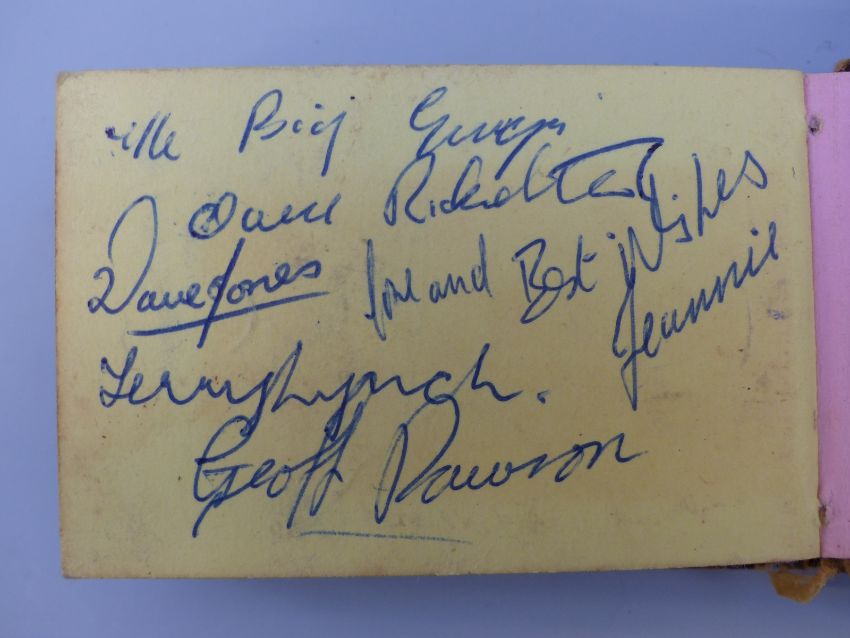 Big
Dave
Dave Jones
love and Best Wishes
Jeannie
Terry Lynch.
Geoff Dawson